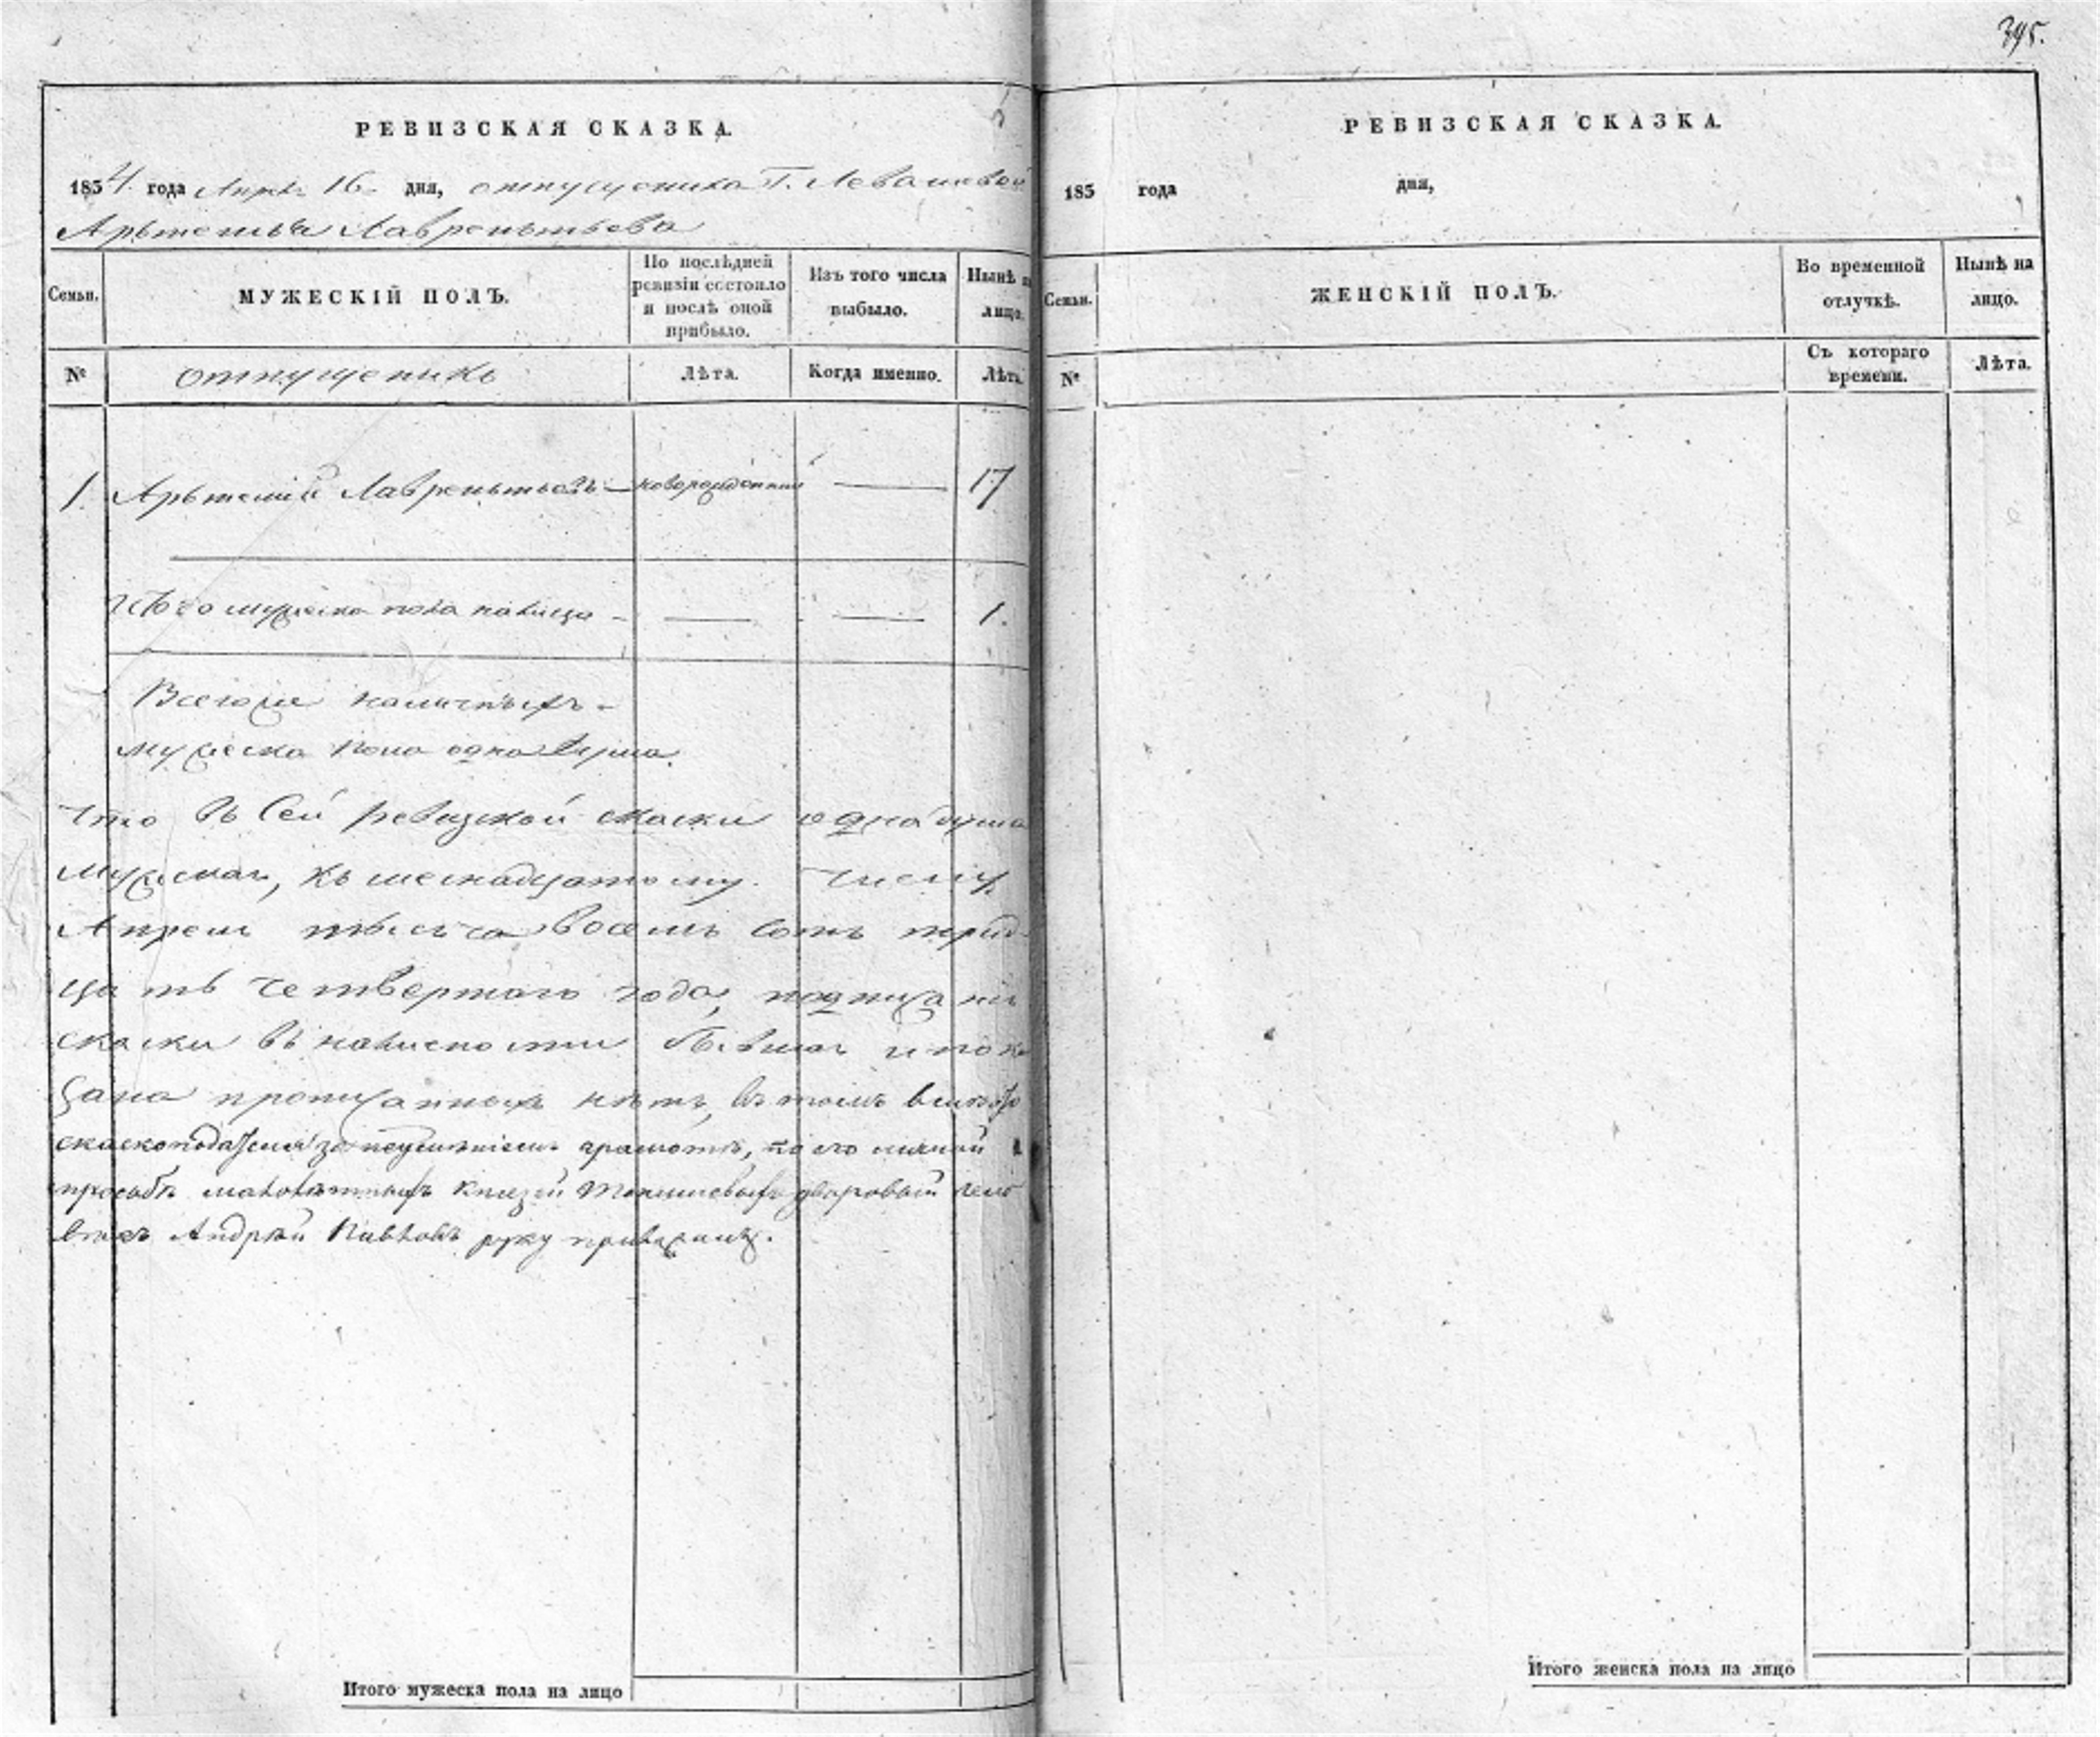 395.
РЕВИЗСКАЯ СКАЗКА.
1834. года Апрѣл 16 дня, отпущеника Г. Левашевой
Арьтемья Лаврентьева
Семьи.
МУЖЕСКІЙ ПОЛЪ.
По послѣдней ревизіи состояло и послѣ оной прибыло.
Изъ того числа выбыло.
Нынѣ на лицо.
№
отпущеникъ
Лѣта.
Когда именно.
Лѣта.
1. Арьтемий Лаврентьевъ новорожденный — 17
Итого мужеска пола налицо — — 1.
Всего же наличныхъ
мужеска пола одна душа.
Что въ Сей ревизской скаски одна душа
мужеская, къ шеснадцатому числу
Апреля тысяча восемь сотъ трид
цать четвертаго года, подписании
скаски въ наличности бывшая и пока
зана прописанныхъ нѣтъ, въ томъ вместо
скаскоподателя за неуменіемъ грамотѣ, по его личной
просьбѣ малолѣтныхъ Князей дворовый чело
векъ Андрѣй Павловъ руку приложилъ.
Итого мужеска пола на лицо
РЕВИЗСКАЯ СКАЗКА.
183 года дня,
Семьи.
ЖЕНСКІЙ ПОЛЪ.
Во временной отлучкѣ.
Нынѣ на лицо.
№
Съ котораго времени.
Лѣта.
Итого женска пола на лицо